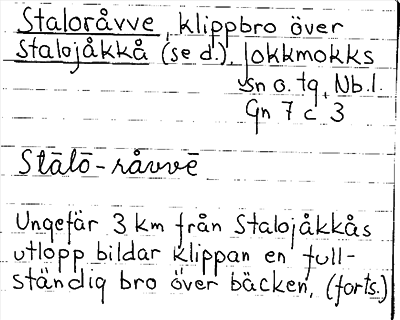 Staloråvve, klippbro över
Stalojåkkå (se d.), Jokkmokks
sn o. tg, Nb. l.
Gn 7 c 3
Stālō-råvvē
Ungefär 3 km från Stalojåkkås
utlopp bildar klippan en full-
ständig bro över bäcken, (forts.)